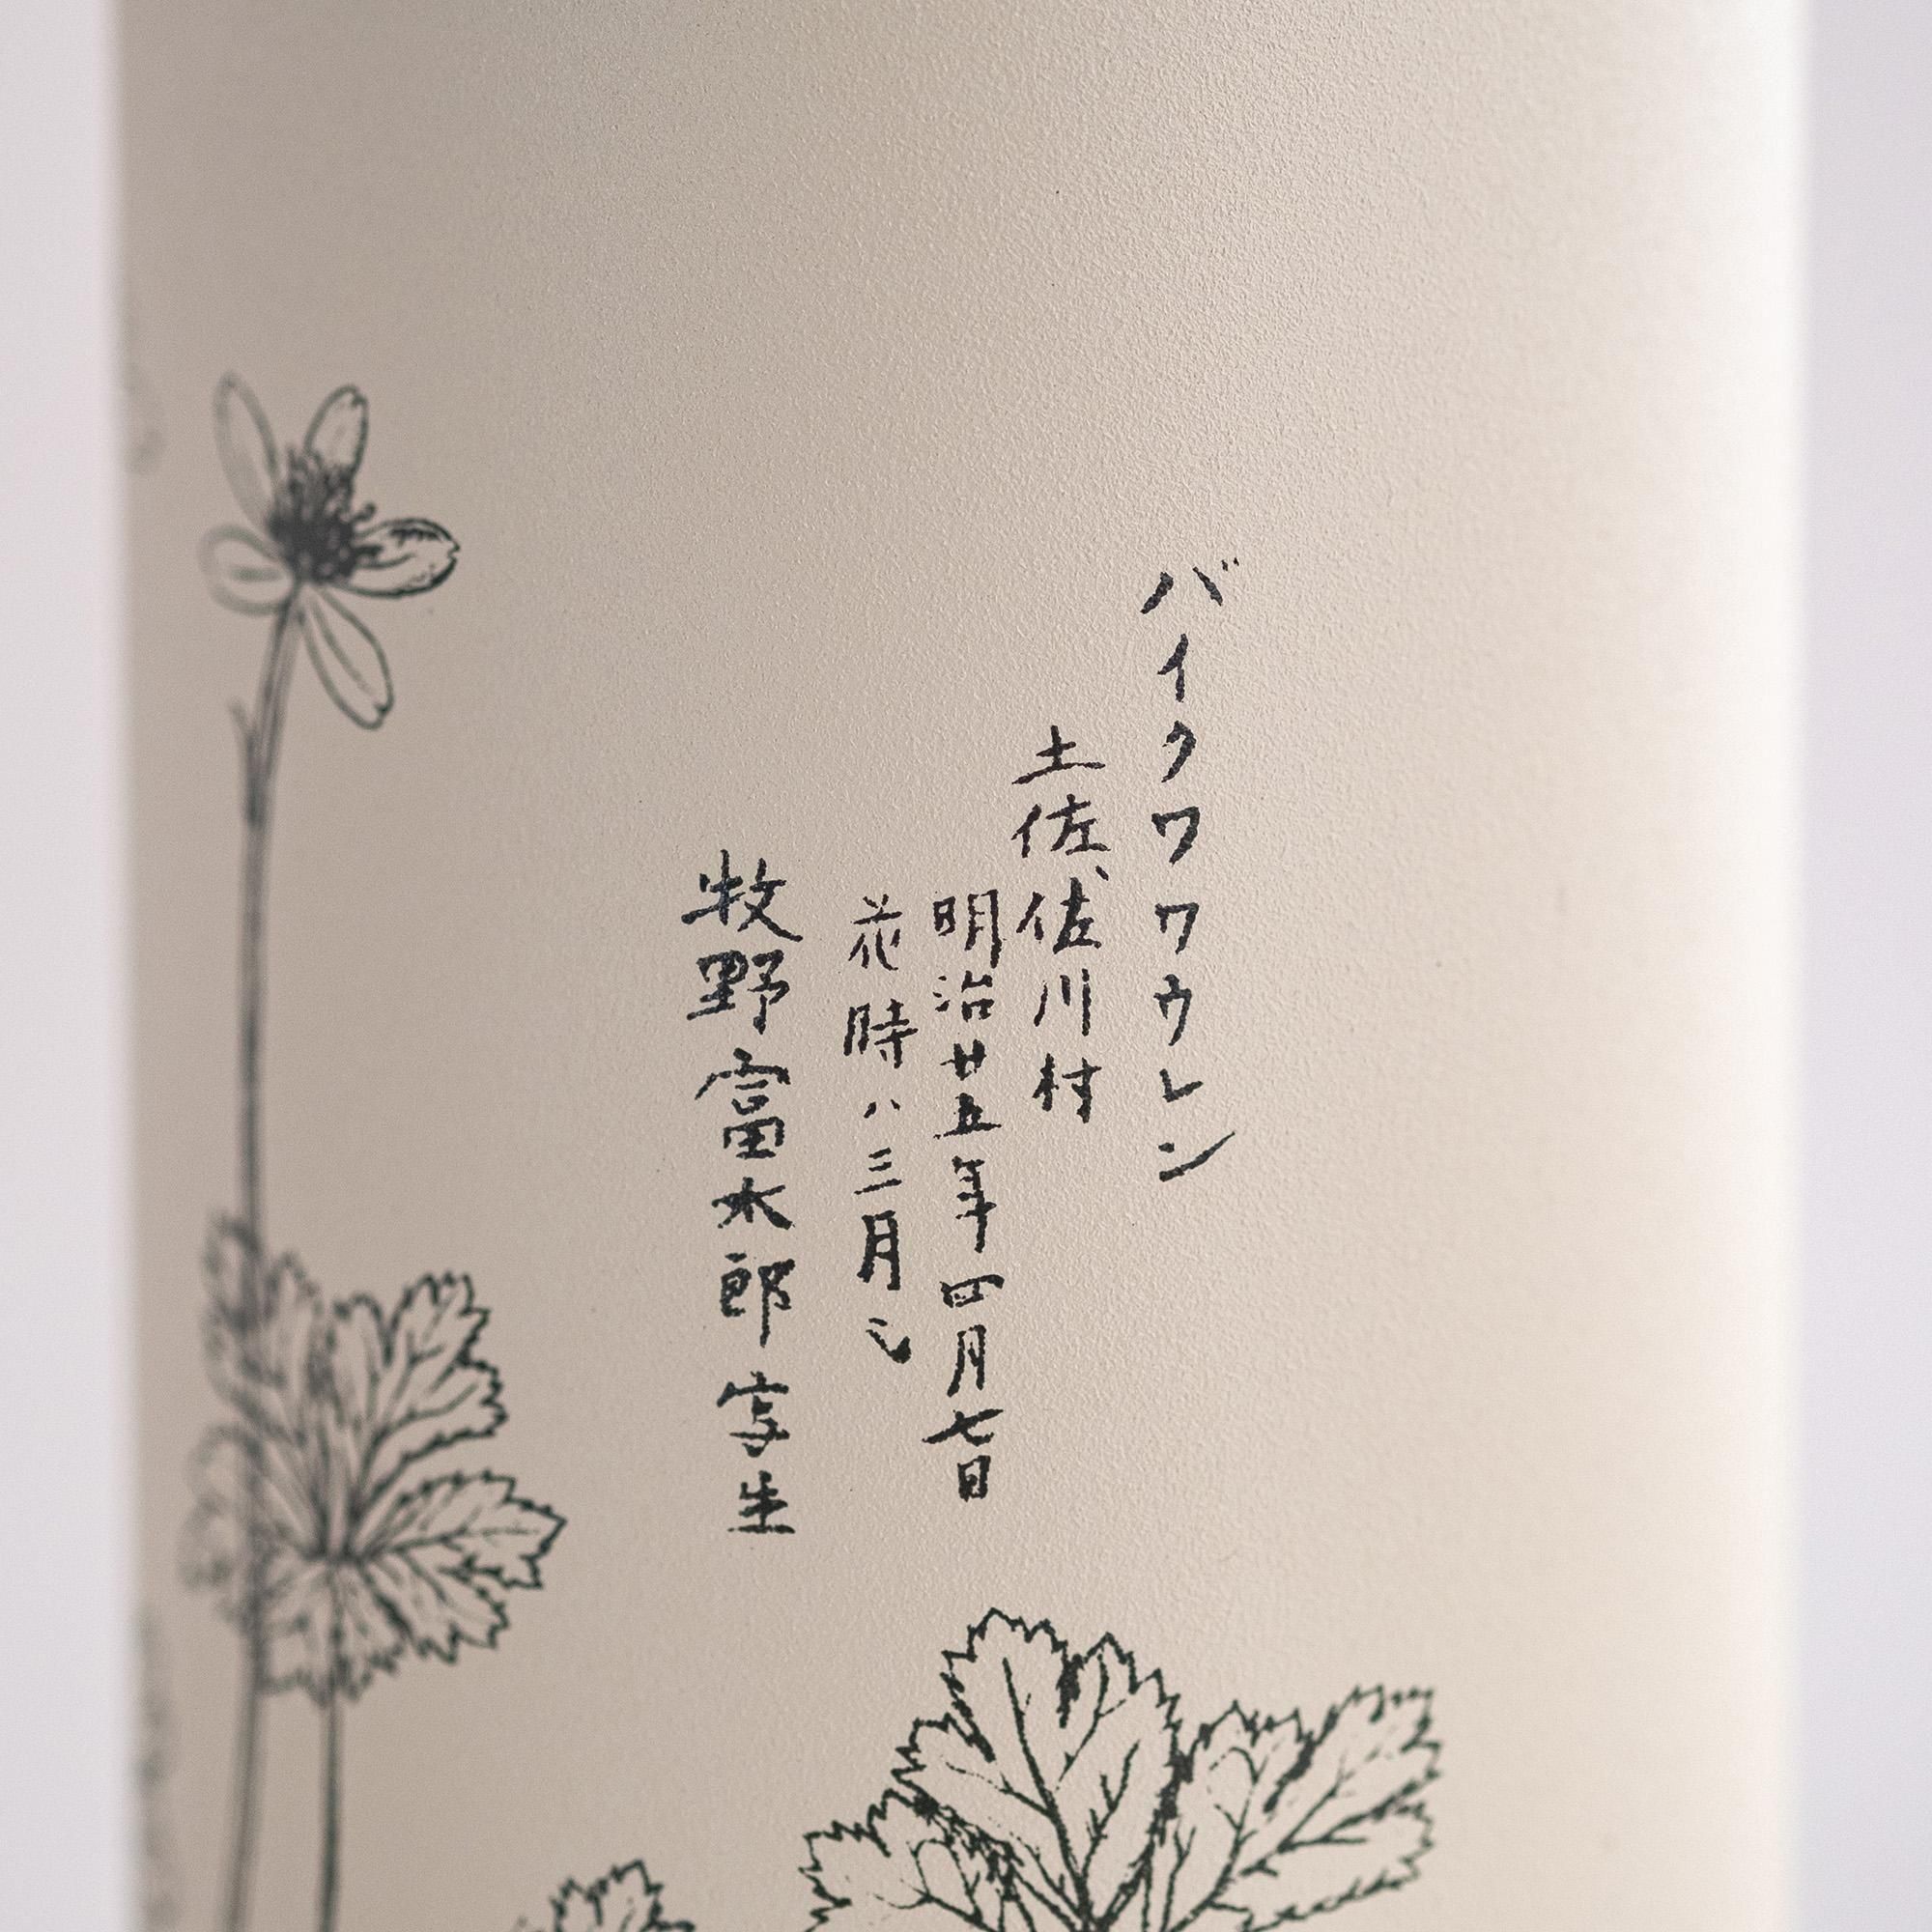 バイクワワウレン
土佐、佐川村
明治廿五年四月七日
花時ハ三月
牧野富太郎写生